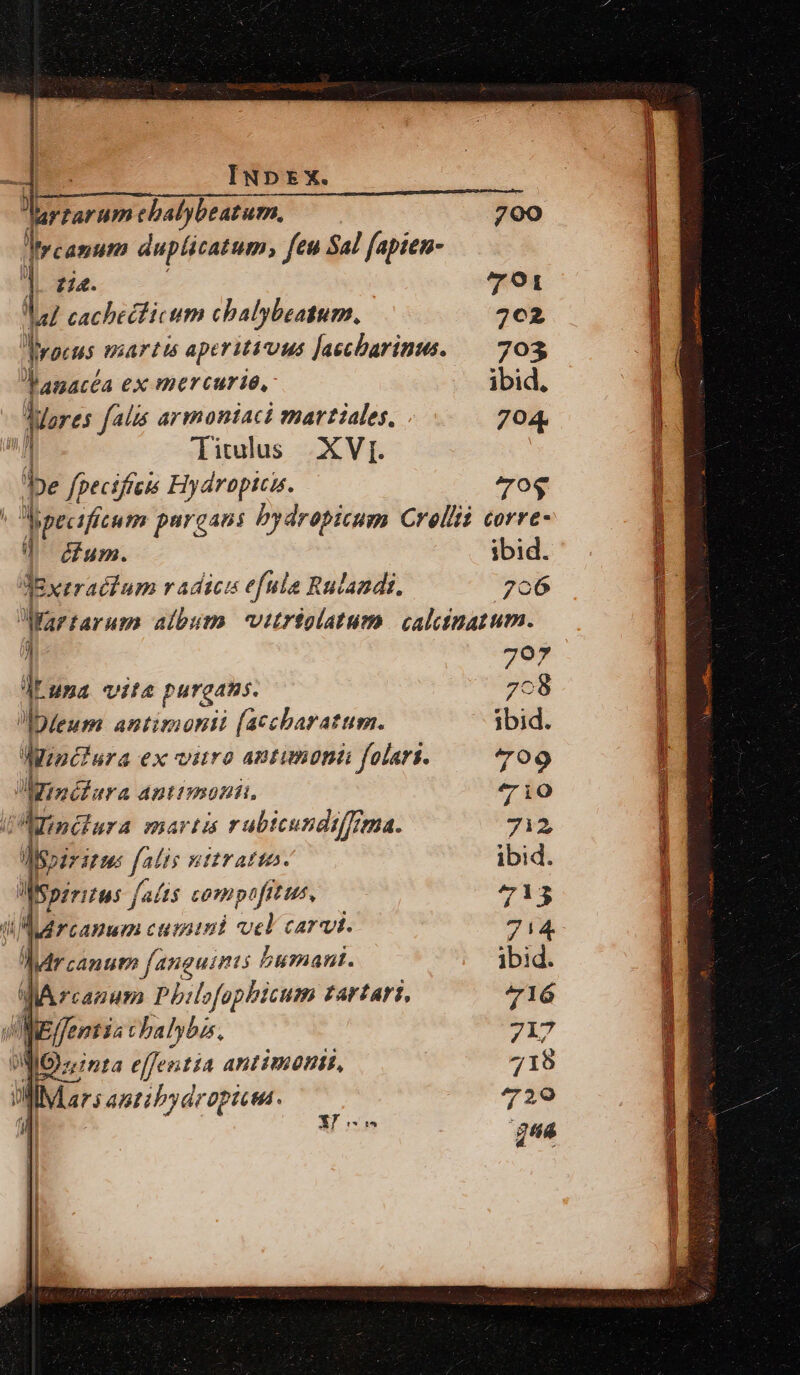 INDEX.
artarum chalybeatum, 700
rcanum duplicatum, ſeu Sal ſapien-
tiæ. 701
al cachecticum chalybeatum, 702
rocus martis aperitivus ſaccharinus. 703
anacéa ex mercurio, ibid.
lores ſalis armoniaci martiales, 704
Titulus XVI.
De ſpecificis Hydropicis. 705
pecificum purgans hydropicum Crollii corre-
ctum. ibid.
Extractum radicis eſulæ Rulandi, 706
artarum album vitriolatum calcinatum.
707
Luna vitæ purgans. 708
Oleum antimonii ſaccharatum. ibid.
Tinctura ex vitro antimonii ſolari. 709
Tinctura antimonii, 710
Tinctura martis rubicundiſſima. 712
Spiritus ſalis nitratus. ibid.
Spiritus ſalis compoſitus, 713
Arcanum cumini vel carvi. 714
Arcanum ſanguinis humani. ibid.
Arcanum Philoſophicum tartari, 716
Eſſentia chalybis, 717
Quinta eſſentia antimonii, 718
Mars antihydropicus. 720